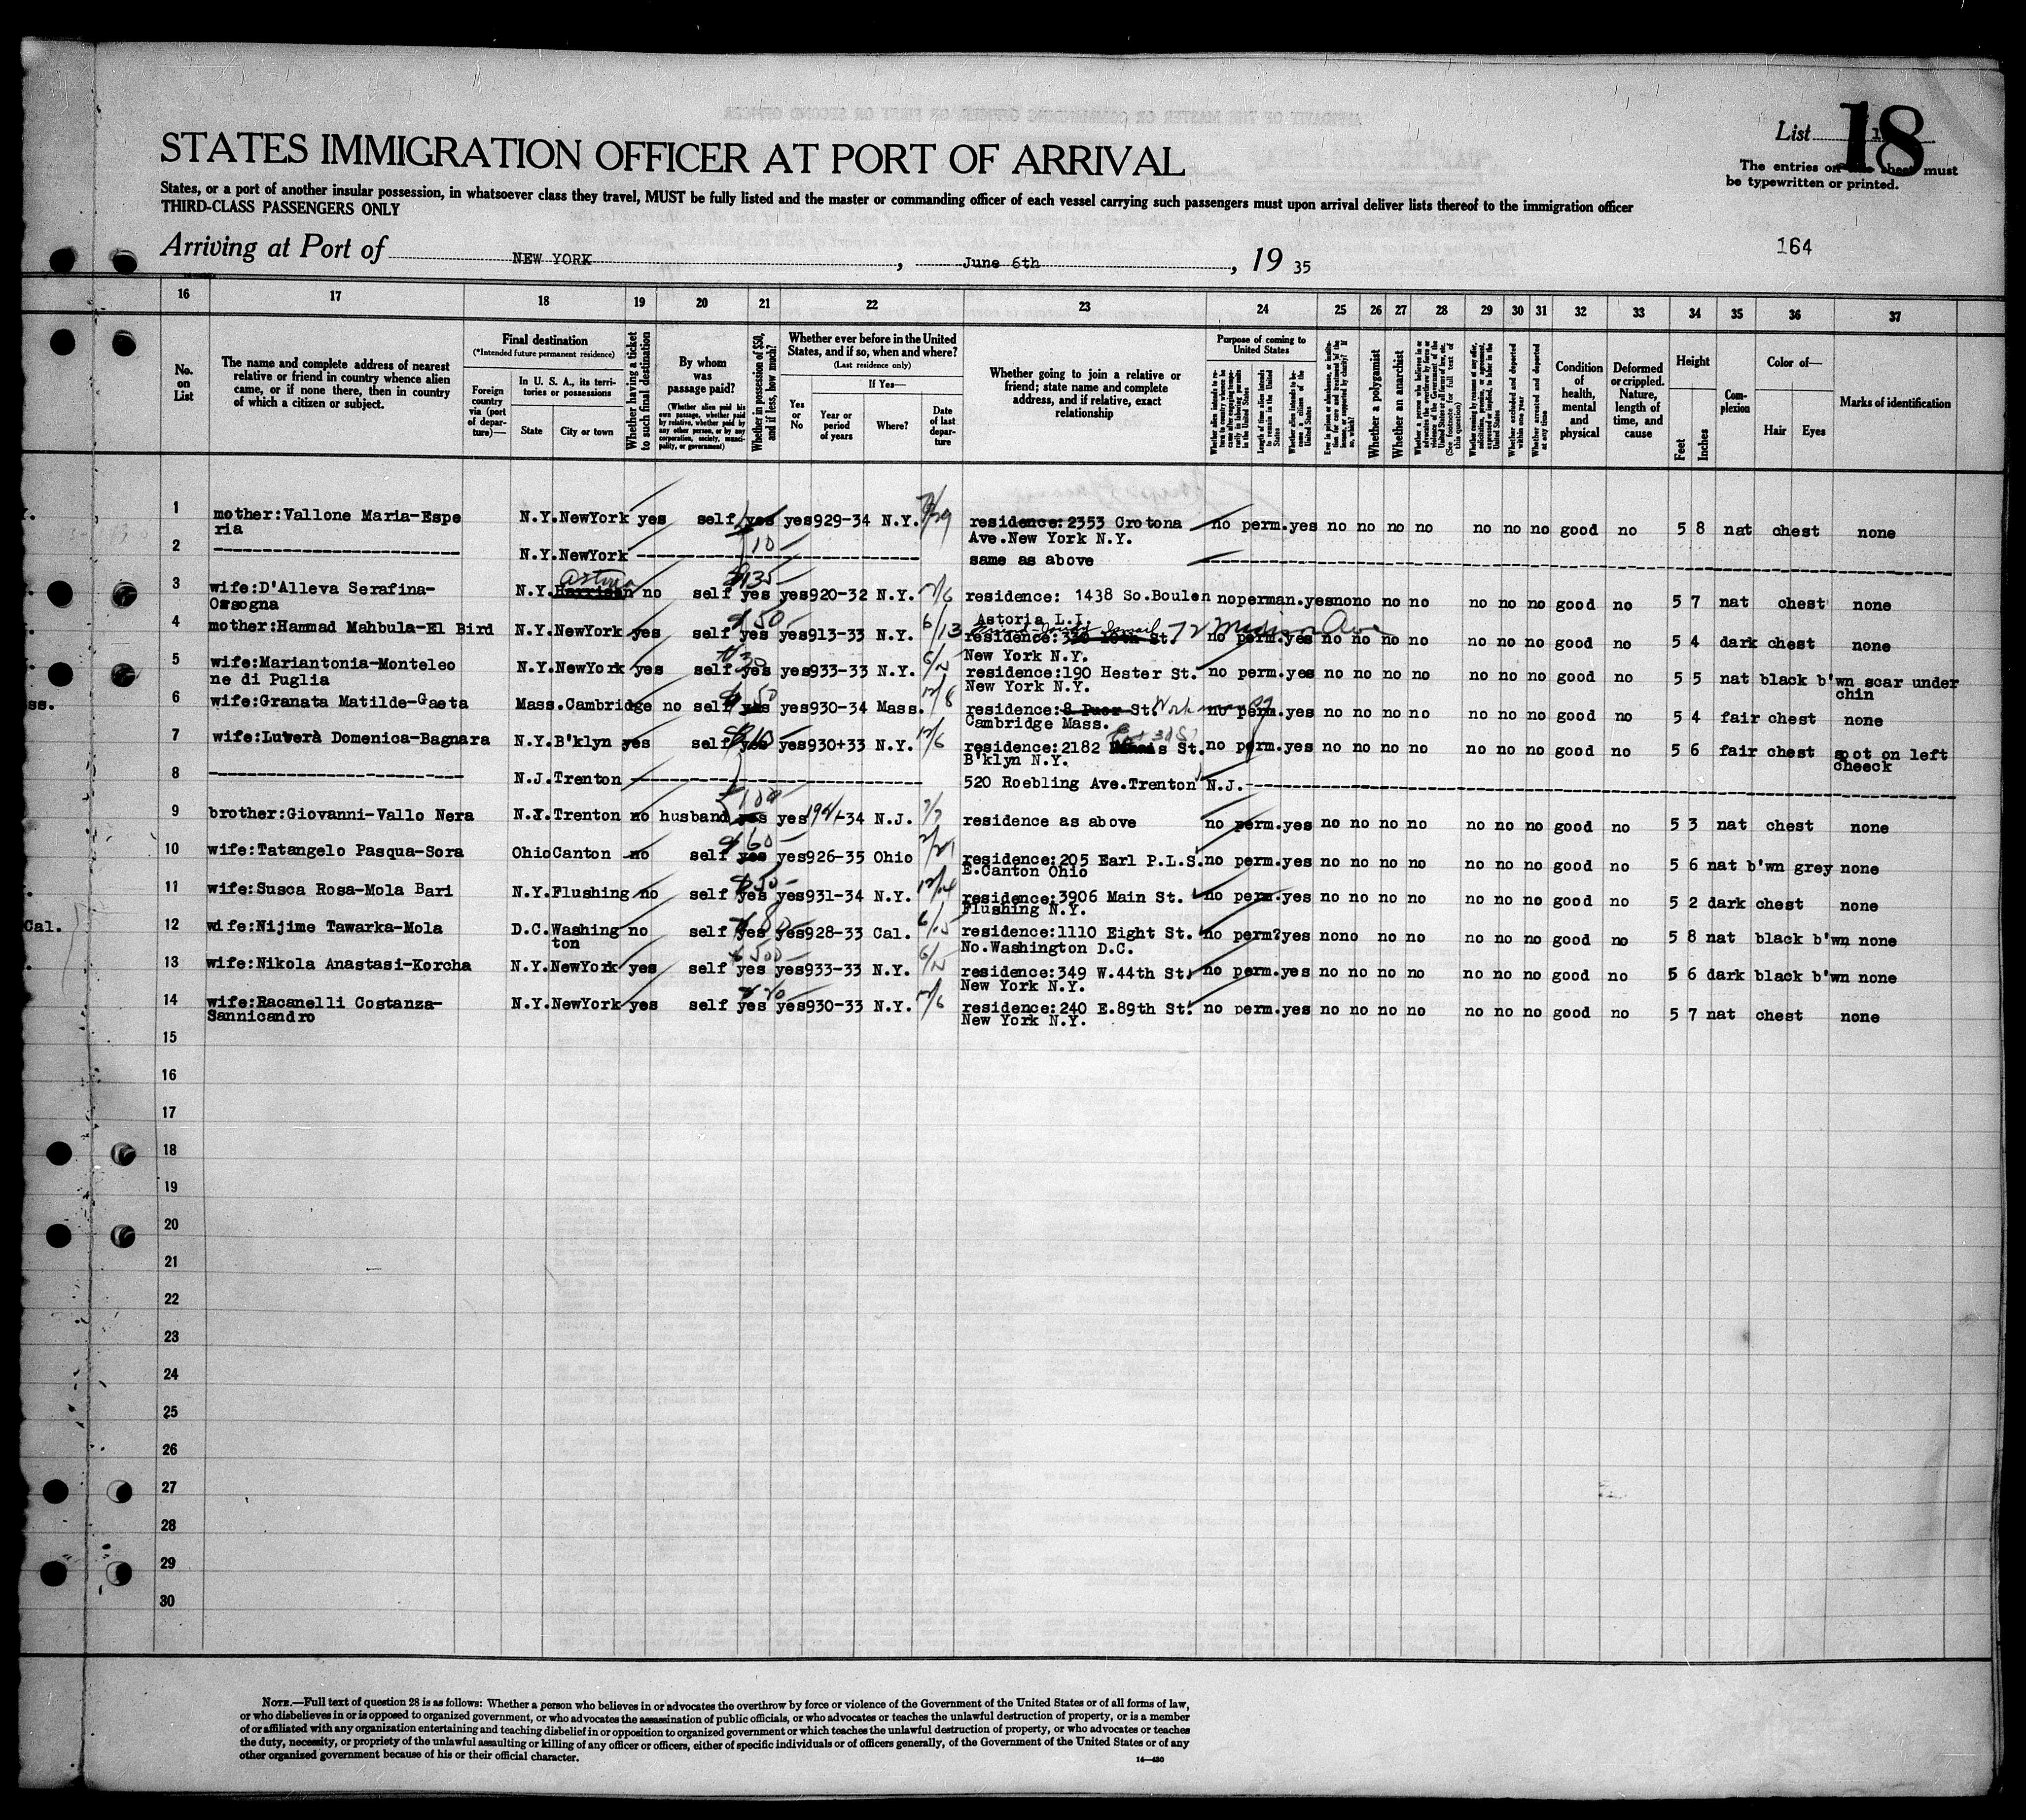 List
18
The entries on this sheet must
be typewritten or printed.
STATES IMMIGRATION OFFICER AT PORT OF ARRIVAL
States, or a port of another insular possession, in whatsoever class they travel, MUST be fully listed and the master or commanding officer of each vessel carrying such passengers must upon arrival deliver lists thereof to the immigration officer
THIRD-CLASS PASSENGERS ONLY
Arriving at Port of NEW YORK , June 6th , 19 35
164
16 17 18 19 20 21 22 23 24 25 26 27 28 29 30 31 32 33 34 35 36 37
No. on List
The name and complete address of nearest relative or friend in country whence alien came, or if none there, then in country of which a citizen or subject.
Final destination
(*Intended future permanent residence)
Foreign country via (port of departure)—
In U. S. A., its territories or possessions
State
City or town
Whether having a ticket to such final destination
By whom was passage paid?
(Whether alien paid his own passage, whether paid by relative, whether paid by any other person, or by any corporation, society, municipality, or government)
Whether in possession of $50, and if less, how much?
Whether ever before in the United States, and if so, when and where?
(Last residence only)
If Yes—
Yes or No
Year or period of years
Where?
Date of last departure
Whether going to join a relative or friend; state name and complete address, and if relative, exact relationship
Purpose of coming to United States
Length of time alien intends to remain in the United States
Whether alien intends to become a citizen of the United States
Whether a polygamist
Whether an anarchist
Whether excluded and deported within one year
Whether arrested and deported at any time
Condition of health, mental and physical
Deformed or crippled. Nature, length of time, and cause
Height
Feet
Inches
Complexion
Color of—
Hair
Eyes
Marks of identification
1 mother:Vallone Maria-Espe N.Y. NewYork yes self yes yes 929-34 N.Y. residence:2353 Crotona no perm. yes no no no no no no no good no 5 8 nat chest none
ria Ave.New York N.Y.
10-
2 N.Y. NewYork same as above
Astoria $135-
3 wife:D'Alleva Serafina- N.Y. Harrison no self yes yes 920-32 N.Y. residence: 1438 So.Boulen no perman. yes no no no no no no no good no 5 7 nat chest none
Ossogna Astoria L.I.
$50-
4 mother:Hammad Mahbula-El Bird N.Y. NewYork yes self yes yes 913-33 N.Y. 6/13 residence: St. 72 Madison Ave no perm. yes no no no no no no no good no 5 4 dark chest none
New York N.Y.
5 wife:Mariantonia-Monteleo N.Y. NewYork yes self yes yes 933-33 N.Y. residence:190 Hester St. no perm. yes no no no no no no no good no 5 5 nat black b'wn scar under
ne di Puglia New York N.Y. chin
$50
6 wife:Granata Matilde-Gaeta Mass. Cambridge no self yes yes 930-34 Mass. residence: St. no perm. yes no no no no no no no good no 5 4 fair chest none
Cambridge Mass.
7 wife:Luverà Domenica-Bagnara N.Y. B'klyn yes self yes yes 930+33 N.Y. residence:2182 St. no perm. yes no no no no no no no good no 5 6 fair chest spot on left
B'klyn N.Y. cheeck
8 N.J. Trenton 520 Roebling Ave.Trenton N.J.
$100-
9 brother:Giovanni-Vallo Nera N.Y. Trenton no husband yes yes -34 N.J. residence as above no perm. yes no no no no no no no good no 5 3 nat chest none
$60-
10 wife:Tatangelo Pasqua-Sora Ohio Canton no self yes yes 926-35 Ohio residence:205 Earl P.L.S. no perm. yes no no no no no no no good no 5 6 nat b'wn grey none
E.Canton Ohio
$50-
11 wife:Susca Rosa-Mola Bari N.Y. Flushing no self yes yes 931-34 N.Y. residence:3906 Main St. no perm. yes no no no no no no no good no 5 2 dark chest none
Flushing N.Y.
Cal.
12 wife:Nijime Tawarka-Mola D.C. Washing no self yes yes 928-33 Cal. residence:1110 Eight St. no perm? yes no no no no no no no good no 5 8 nat black b'wn none
ton No.Washington D.C.
$500-
13 wife:Nikola Anastasi-Korcha N.Y. NewYork yes self yes yes 933-33 N.Y. residence:349 W.44th St. no perm. yes no no no no no no no good no 5 6 dark black b'wn none
New York N.Y.
14 wife:Racanelli Costanza- N.Y. NewYork yes self yes yes 930-33 N.Y. residence:240 E.89th St. no perm. yes no no no no no no no good no 5 7 nat chest none
Sannicandro New York N.Y.
15
16
17
18
19
20
21
22
23
24
25
26
27
28
29
30
NOTE.—Full text of question 28 is as follows: Whether a person who believes in or advocates the overthrow by force or violence of the Government of the United States or of all forms of law,
or who disbelieves in or is opposed to organized government, or who advocates the assassination of public officials, or who advocates or teaches the unlawful destruction of property, or is a member
of or affiliated with any organization entertaining and teaching disbelief in or opposition to organized government or which teaches the unlawful destruction of property, or who advocates or teaches
the duty, necessity, or propriety of the unlawful assaulting or killing of any officer or officers, either of specific individuals or of officers generally, of the Government of the United States or of any
other organized government because of his or their official character.
14—430